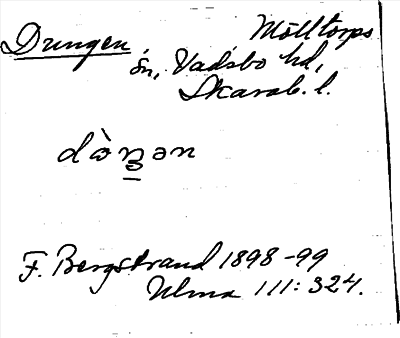 Drungen Mölltorps
sn, Vadsbo hd,
Skarab. l.
F. Bergstrand 1898-99
Ulma 111: 324.